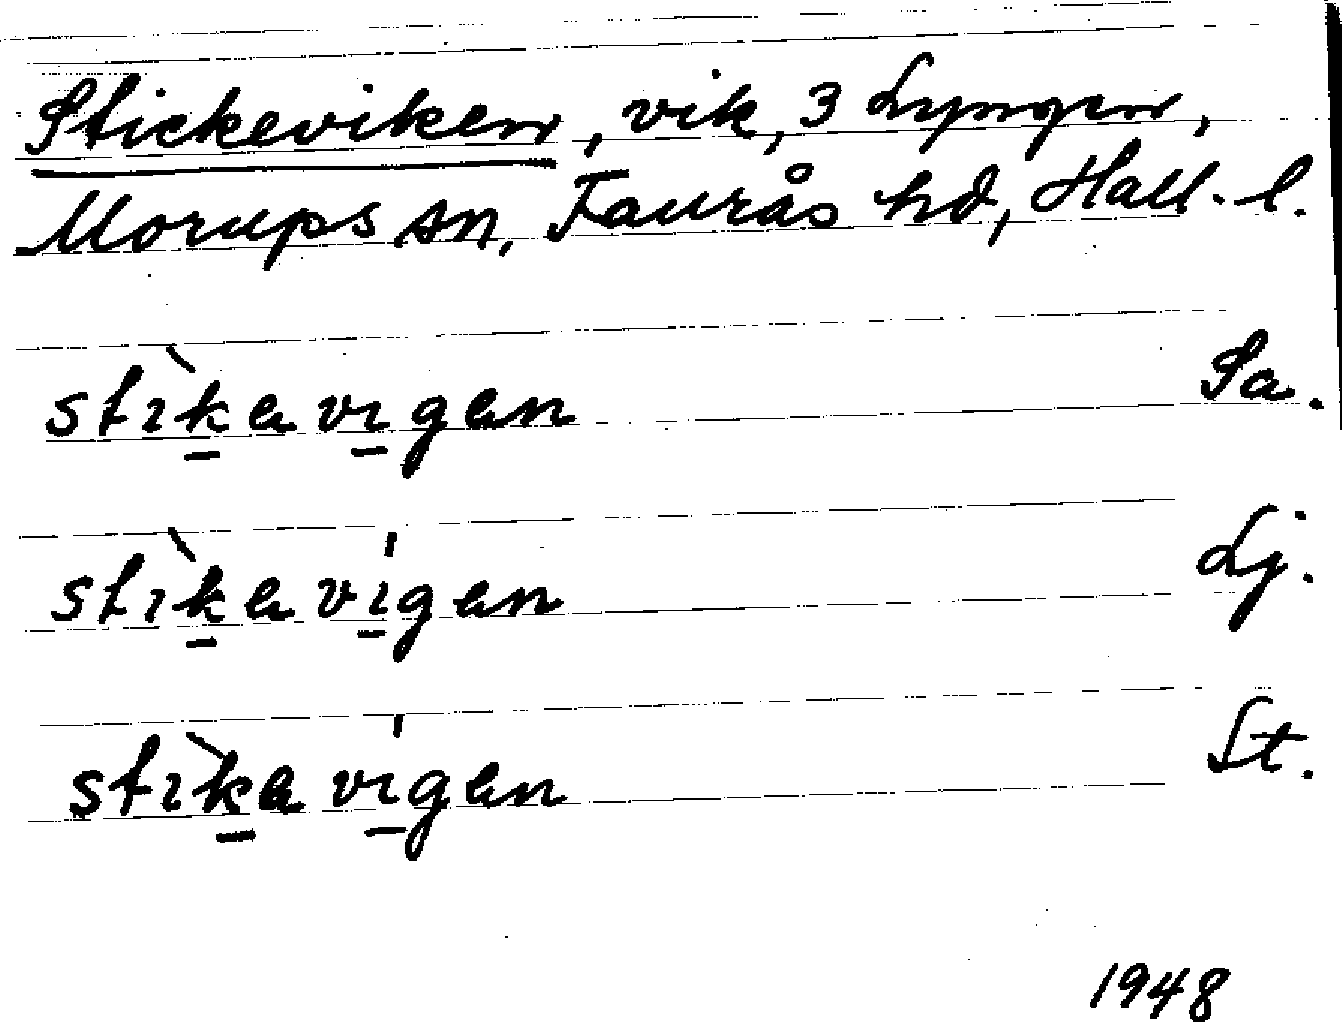 Stickeviken, vik, 3 Lyngen,
Morups sn, Faurås hd, Hall. l.
stı̀k̲avı̲gen Sa.
stı̀k̲avı̲́gen Lj.
stı̀k̲avı̲́gen St.
1948